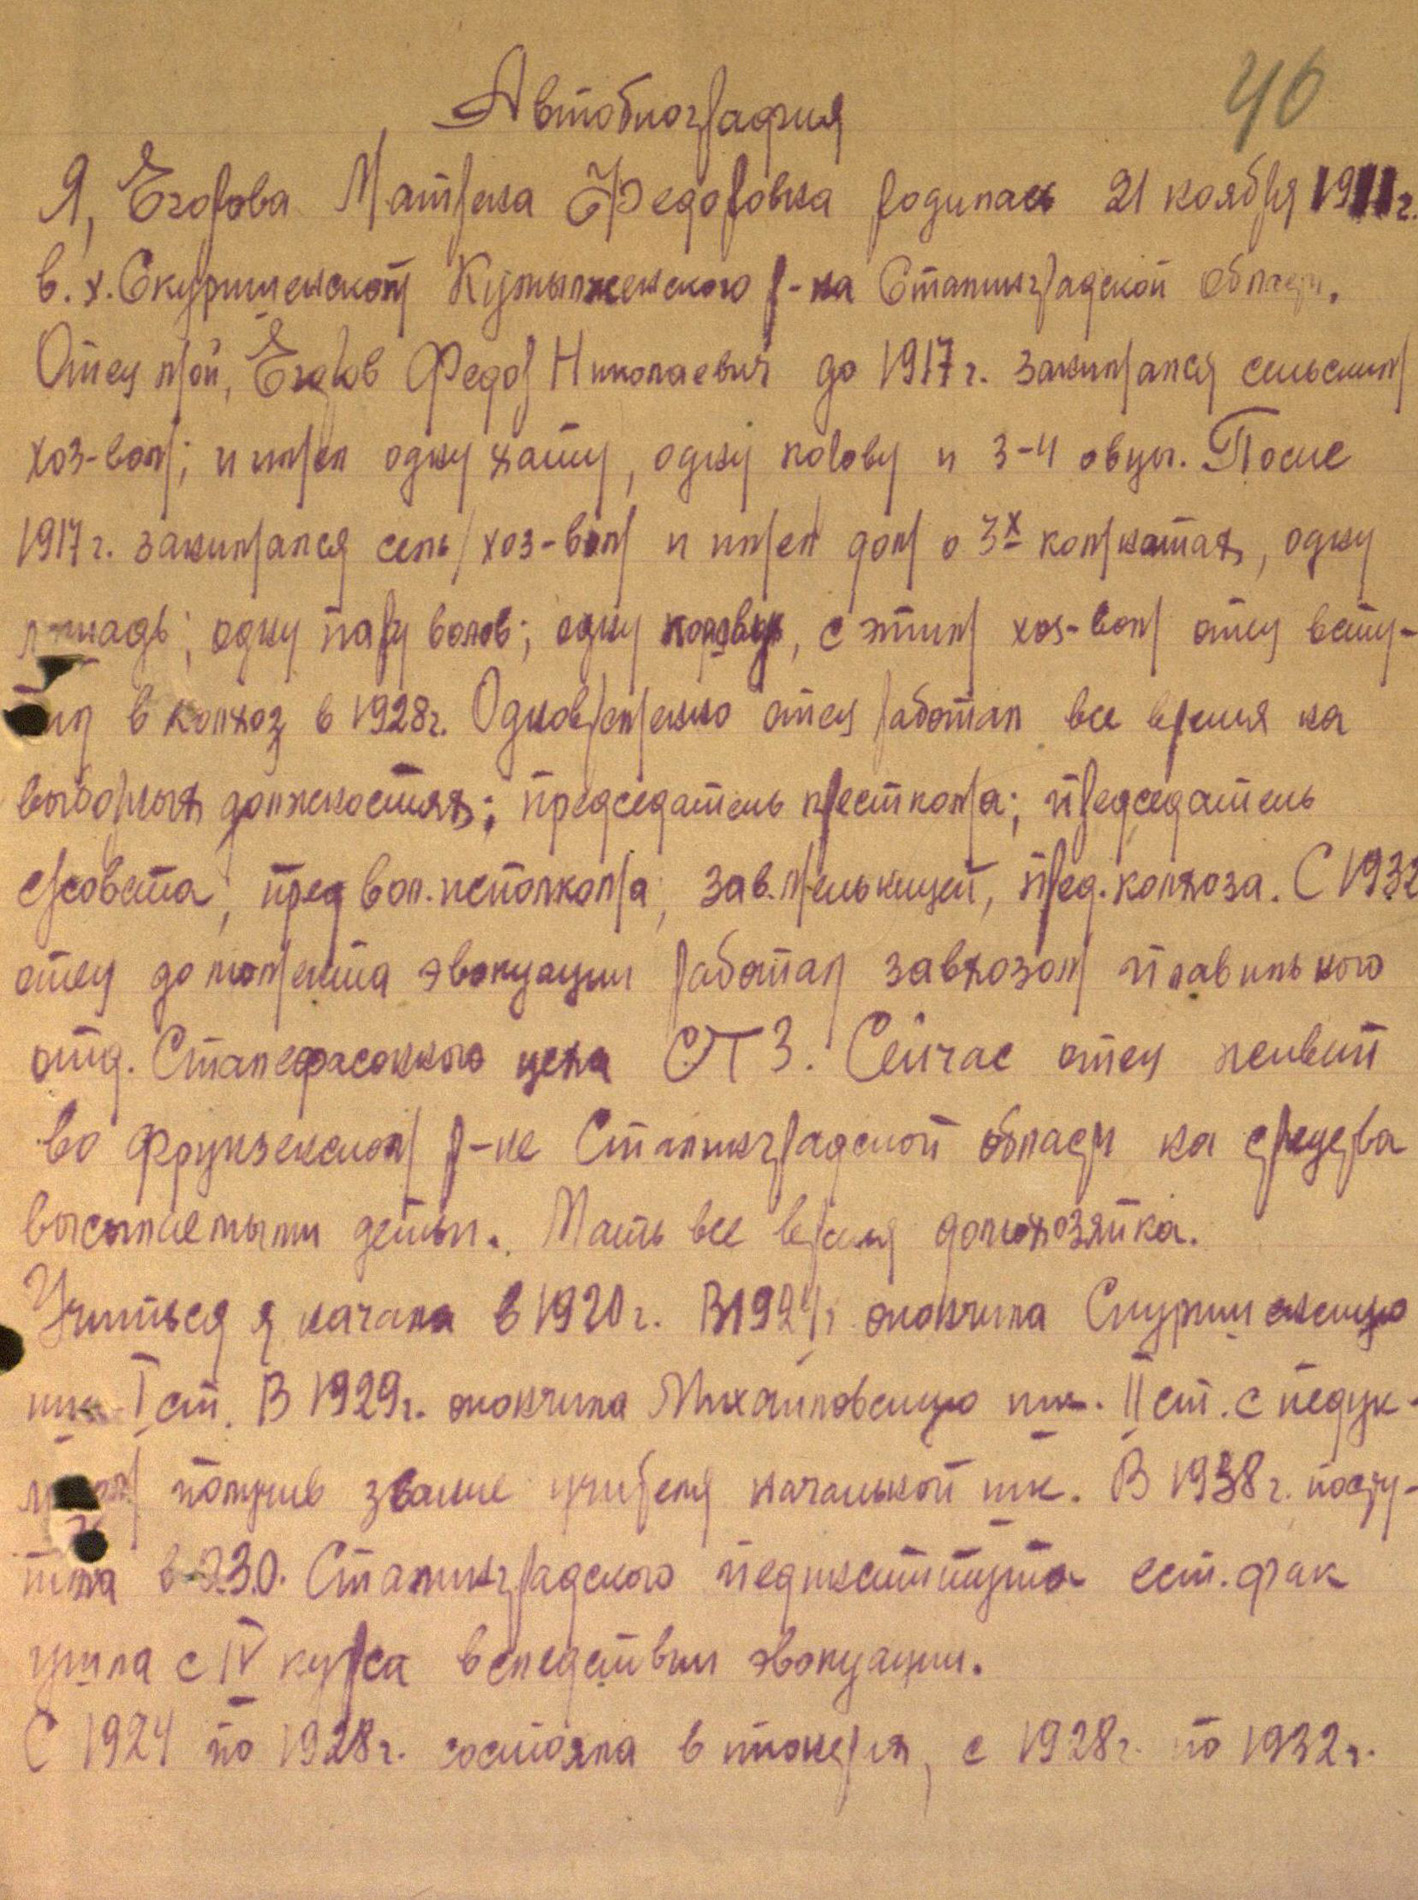 46
Автобиография
Я, Егорова Матрена Федоровна родилась 21 ноября 1911 г.
в. х. Скуришенском Кумылженского р-на Сталинградской области.
Отец мой, Егоров Федор Николаевич до 1917 г. занимался сельским
хоз-вом; имел одну хату, одну корову и 3-4 овцы. После
1917 г. занимался сель/хоз-вом и имел дом о 3х комнатах, одну
лошадь; одну пару волов; одну корову, с этим хоз-вом отец всту-
пил в колхоз в 1928 г. Одновременно отец работал все время на
выборных должностях; председатель месткома; председатель
с/совета; пред вол.исполкома; зав.мельницей, пред.колхоза. С 1932
отец до момента эвокуации работал завхозом плавильного
отд. Сталефасонного цеха СТЗ. Сейчас отец живет
во Фрунзенском р-не Сталинградской области на средства
высылаемыми детьми. Мать все время домохозяйка.
Учиться я начала в 1920 г. В 1924 г. окончила Скуришенскую
шк. I ст. В 1929 г. окончила Михайловскую шк. II ст. с педук-
лоном получив звание учителя начальной шк. В 1938 г. посту-
пила в О.З.О. Сталинградского пединститута ест.фак
ушла с IV курса вследствии эвокуации.
С 1924 по 1928 г. состояла в пионерах, с 1928 г. по 1932 г.